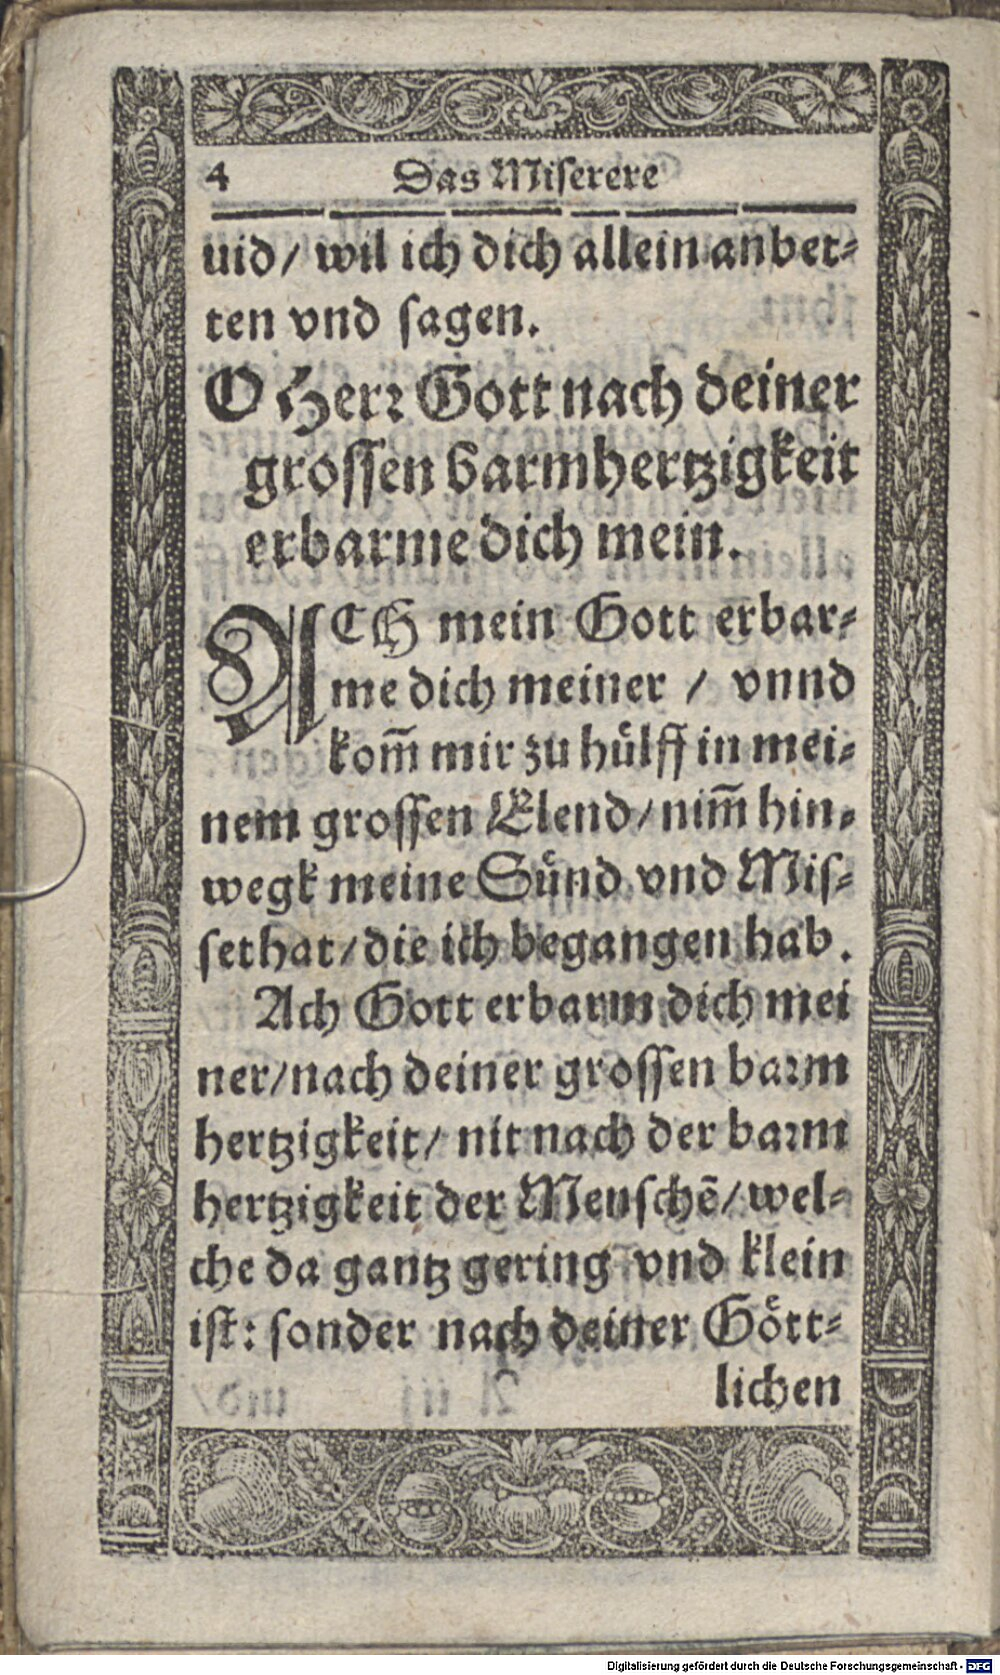 4 Das Miserere
uid/ wil ich dich allein anbet-
ten vnd sagen.
O Herr Gott nach deiner
grossen barmhertzigkeit
erbarme dich mein.
ACH mein Gott erbar-
me dich meiner / vnnd
kom̃ mir zu huͤlff in mei-
nem grossen Elend/ nim̃ hin-
wegk meine Suͤnd vnd Mis-
sethat/ die ich begangen hab.
Ach Gott erbarm dich mei
ner/ nach deiner grossen barm
hertzigkeit/ nit nach der barm
hertzigkeit der Menschẽ/ wel-
che da gantz gering vnd klein
ist: sonder nach deiner Goͤtt-
lichen
Digitalisierung gefördert durch die Deutsche Forschungsgemeinschaft - DFG